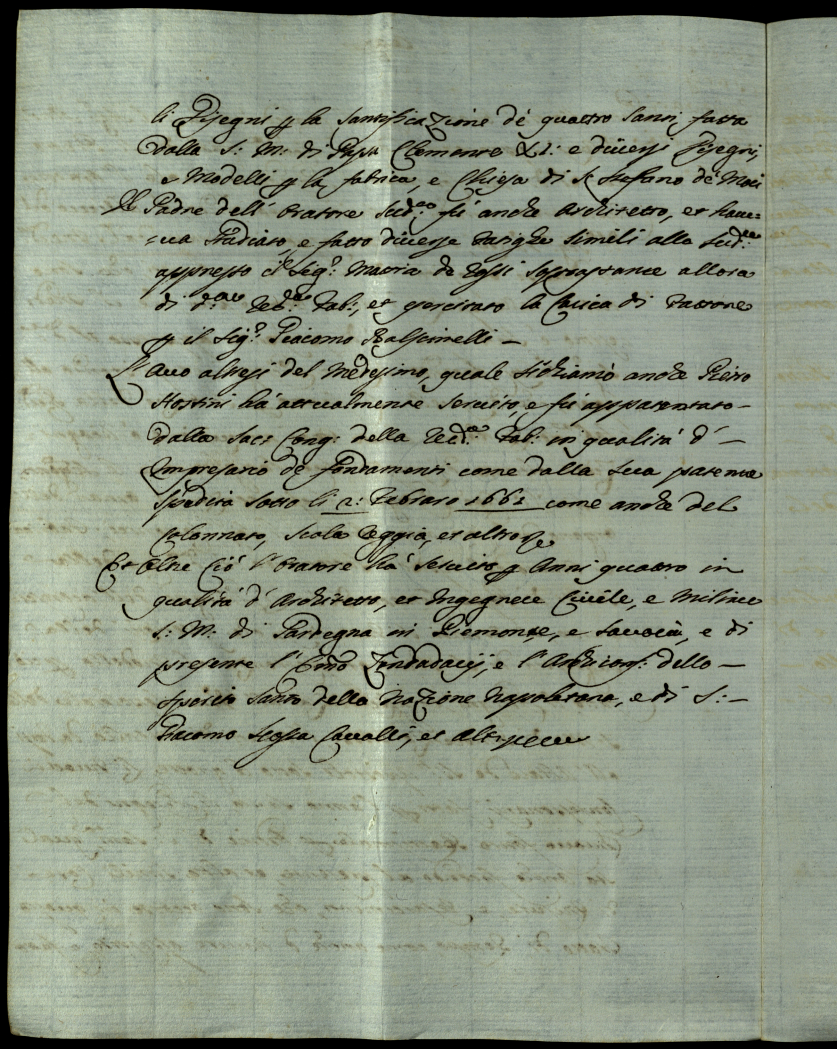 li Disegni p la Santificazione de quattro Santi fatta
dalla S: M: di Papa Clemente XI: e diversi Disegni,
e Modelli p la fabrica, e Chiesa di S. Stefano de Mori
Il Padre dell' Oratore Sud.º fù anche Architetto, et have=
=va Studiato, e fatto diverse fatighe simili alla Sud.ª
appresso il Sig.r Mattia de Rossi Soprastante allora
di d.ª Rev.da Fab:, et esercitato la Carica di Fattore
p il Sig.r Giacomo Balsimelli –
L'Avo altresi del Medesimo, quale si chiamò anche Pietro
Hostini hà attualmente Servito, e fù appatentato –
dalla Sac: Cong: della Rev.da Fab: in qualità d' –
Impresario de fondamenti come dalla Sua patente
Spedita Sotto li 2: Febraro 1661 come anche del
Colonnato, Scala Reggia, et altro
Et oltre Ciò l'Oratore hà Servito p Anni quattro in
qualità d' Architetto, et Ingegnere Civile, e Militare
S: M: di Sardegna in Piemonte, e Savoia, e di
presente l' Emo Zondadari, e l' Archiconf: dello –
Spirito Santo della Nazione Napoletana, e di S: –
Giacomo Scossa Cavalli, et Altri